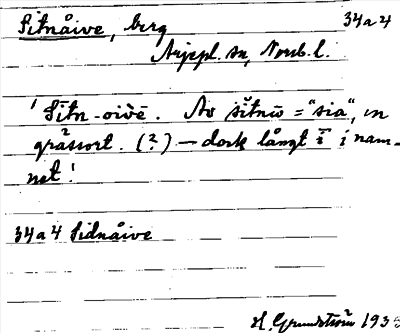 Sitnåive, berg 34a4
Arjepl. sn, Norrb. l.
'Sītn-oivē. Av sitnū = "sia", en
grässort. (?) – dock långt ī i nam-
net!
34a4 Sidnåive
H. Grundström 1935